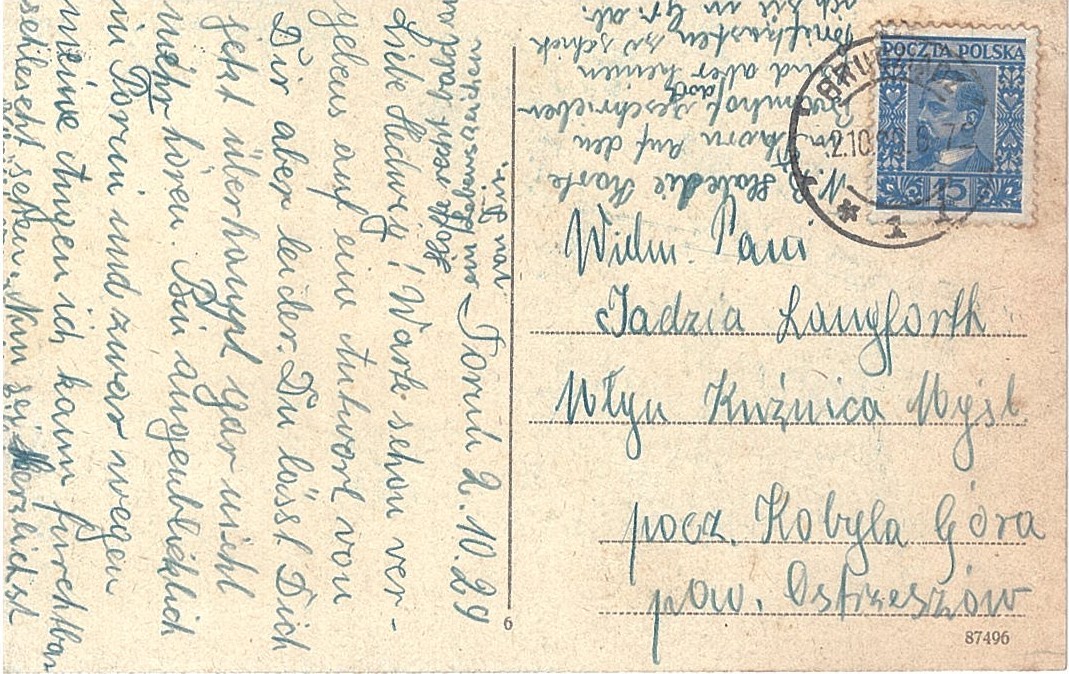 Toruń 2.10.29
Liebe Hedwig! Warte schon ver-
gebens auf eine Antwort von
Dir aber leider. Du lässt Dich
jetzt überhaupt gar nicht
mehr hören. Bin augenblicklich
in Toruń und zwar wegen
meine Augen ich kann furchtbar
schlecht sehen. Nun sei herzlichst
Hoffe recht bald
ein Lebenszeichen
von Dir.
N.B. Habe die Karte
in Thorn auf den
Bahnhof geschrieben
und aber keinen
Briefkasten so schick
ich sie in Gr. ab.
POCZTA POLSKA
15
2.10.
* 1
Wielm. Pani
Jadzia Langforth
Młyn Kuźnica Myśl.
pocz. Kobyla Góra
pow. Ostrzeszów
6
87496